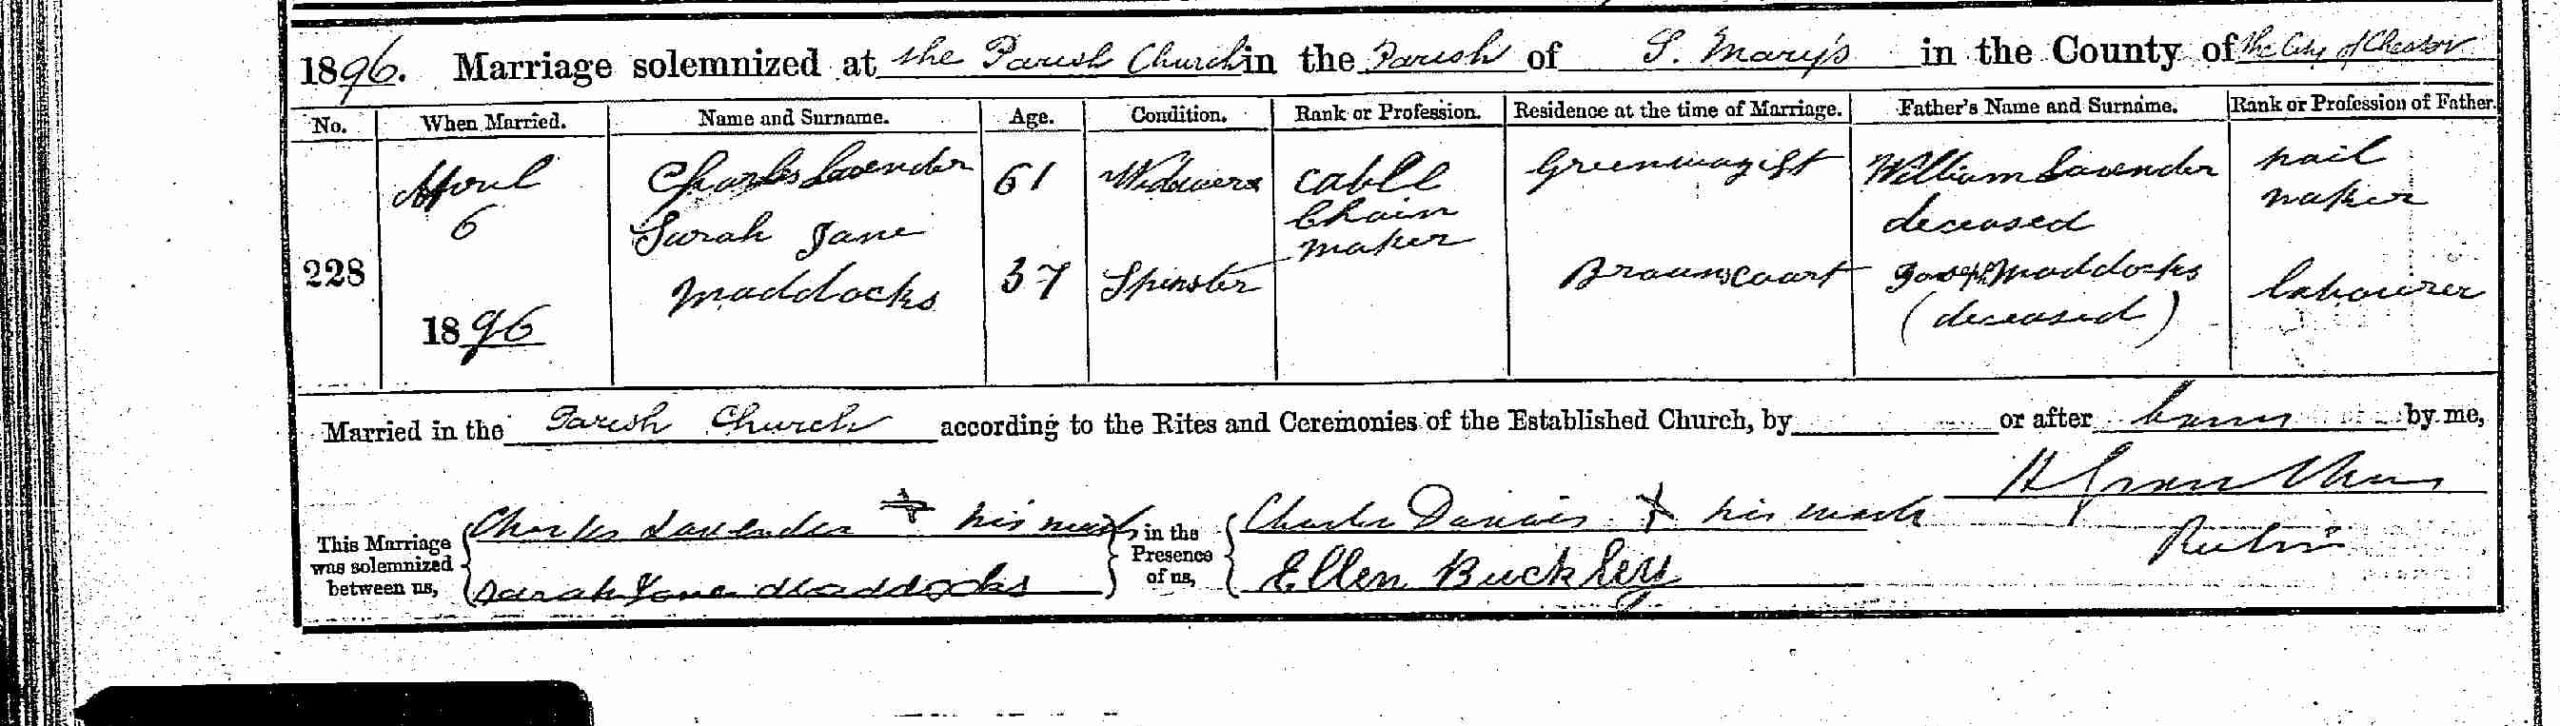 1896. Marriage solemnized at the Parish Church in the Parish of S. Mary's in the County of the City of Chester
No. When Married. Name and Surname. Age. Condition. Rank or Profession. Residence at the time of Marriage. Father's Name and Surname. Rank or Profession of Father.
228 April 6 1896 Charles Lavender 61 Widower Cable Chain maker Greenway St William Lavender deceased nail maker
Sarah Jane Maddocks 37 Spinster Browns court Joseph Maddocks (deceased) Labourer
Married in the Parish Church according to the Rites and Ceremonies of the Established Church, by or after banns by me,
H Grantham
Rector
This Marriage was solemnized between us, Charles Lavender X his mark in the Presence of us, Charles X his mark
Sarah Jane Maddocks Ellen Buckley